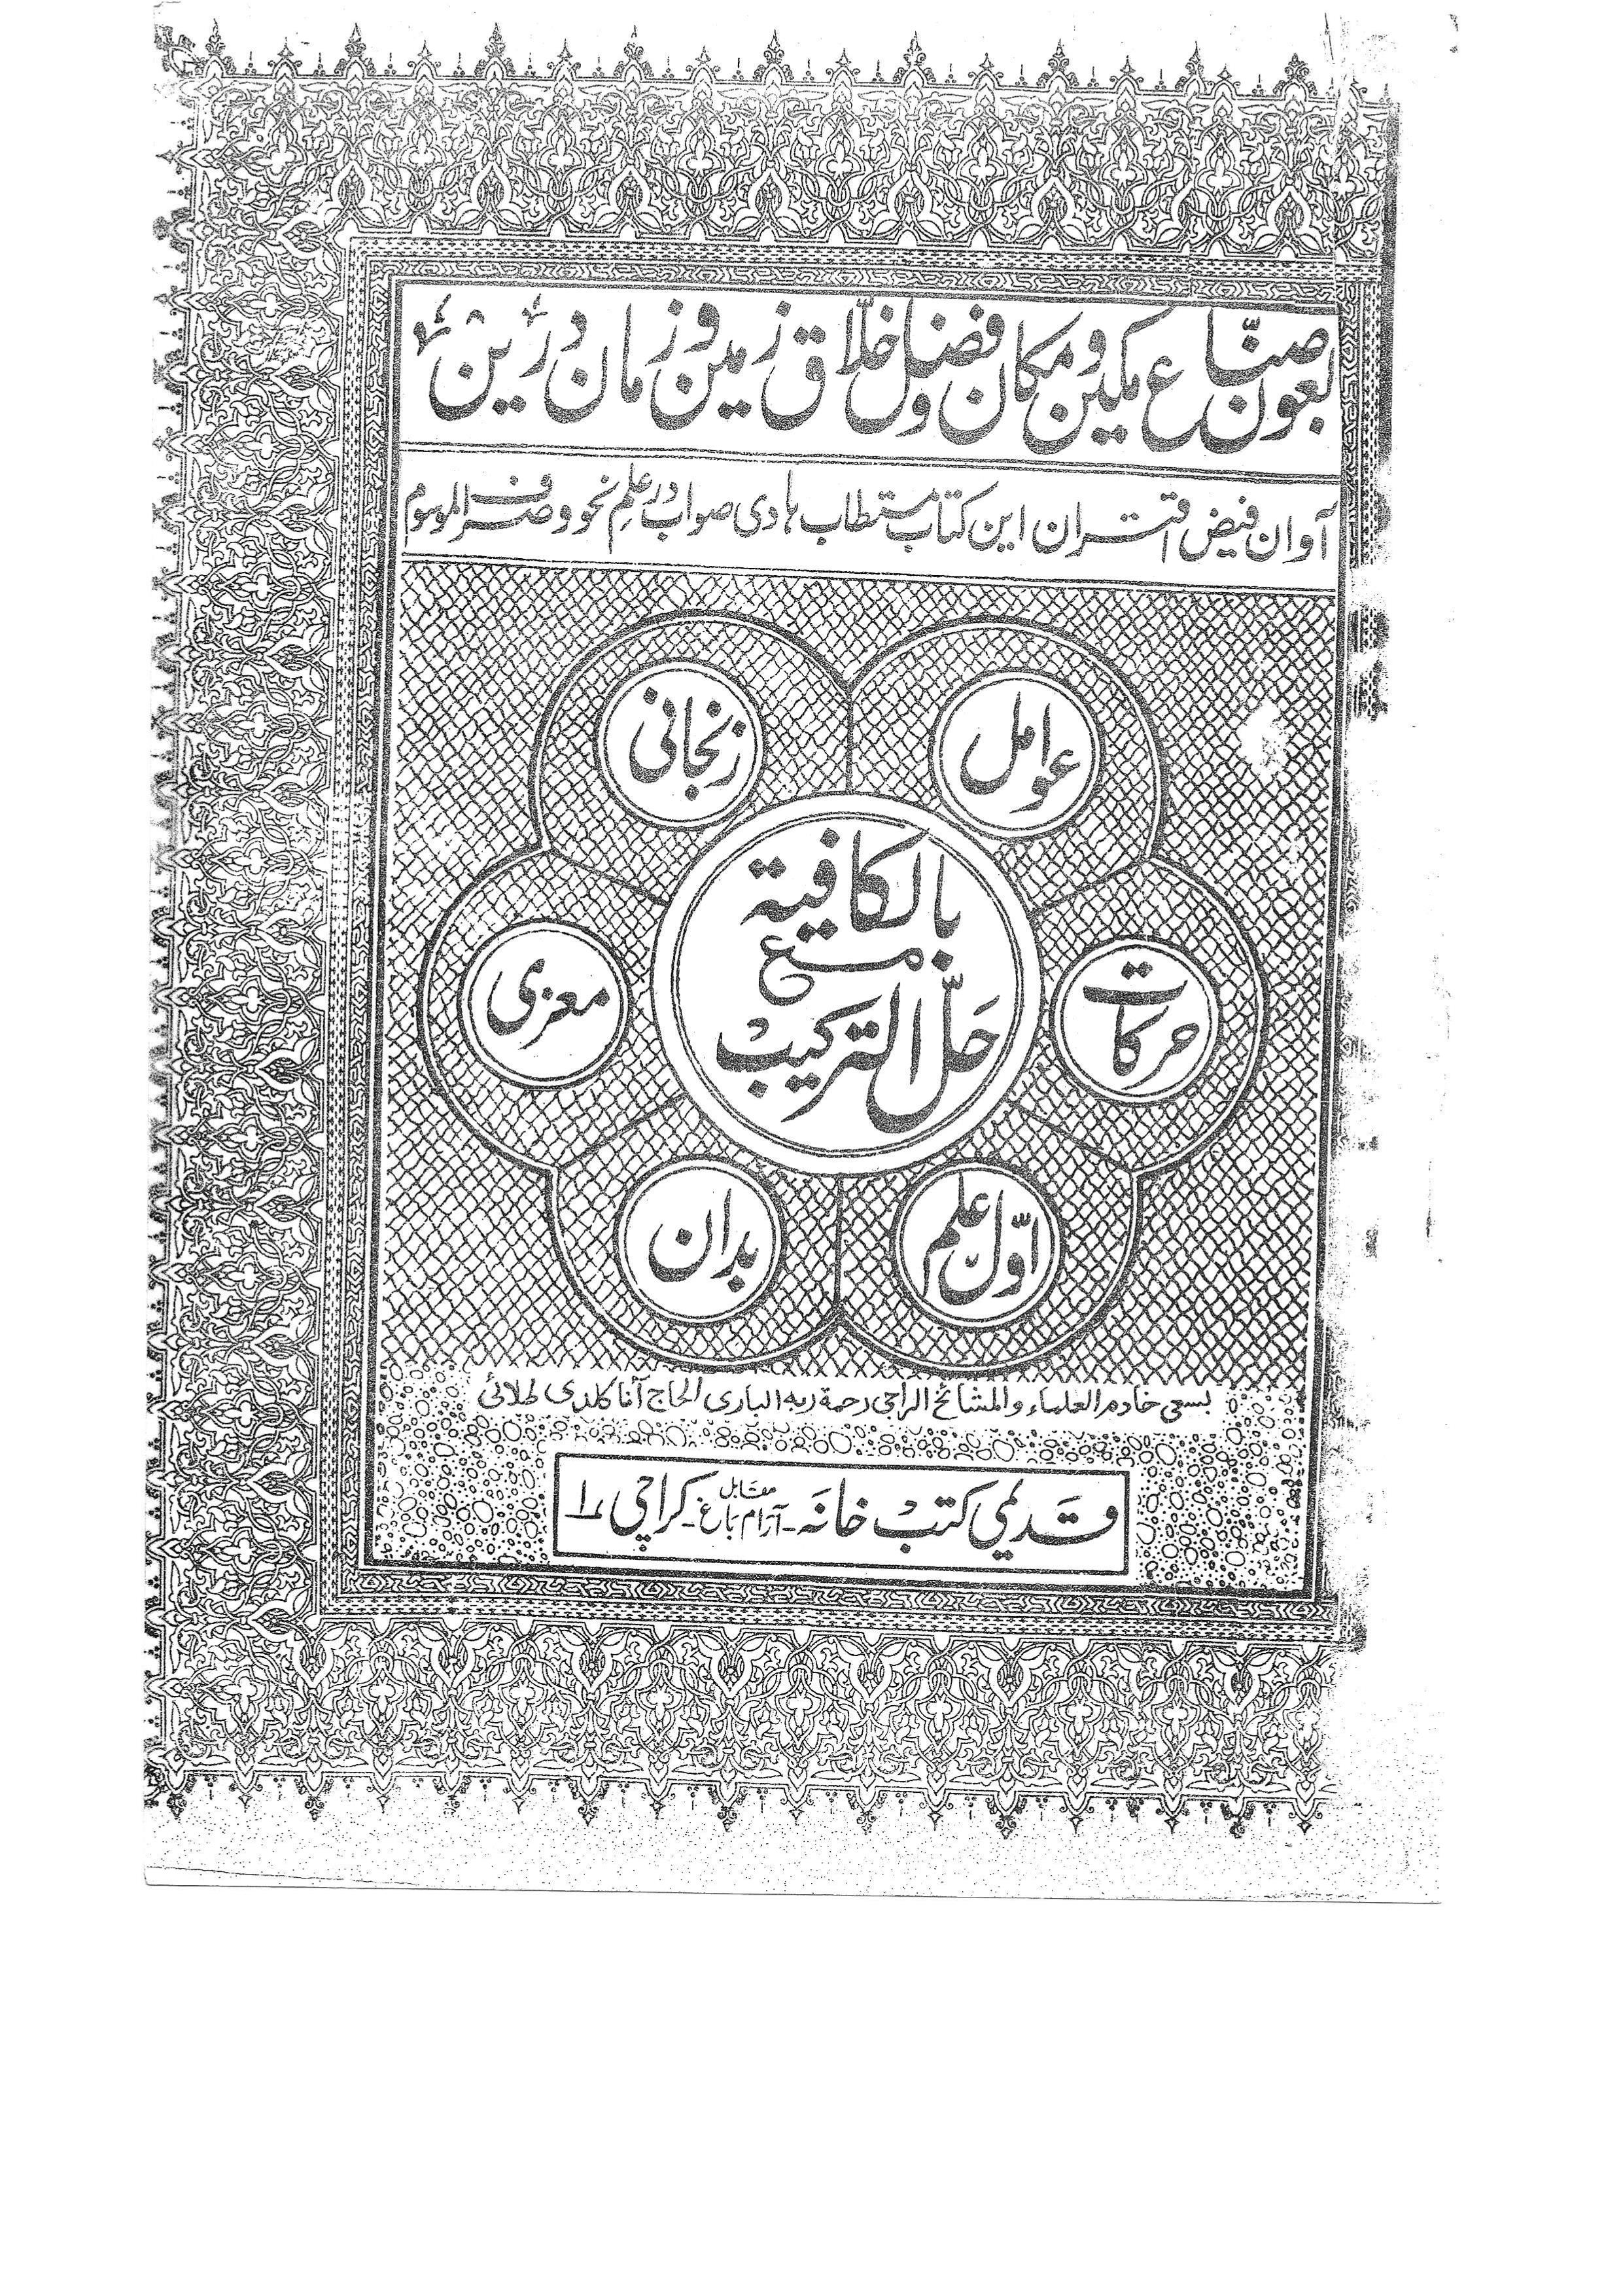 بعون صنّاع مکین و مکان و فضل خلّاق زمین و زمان درین
آوان فیض اقتران این کتاب مستطاب هادی صواب در علم نحو و صرف الموسوم
عوامل
زنجانی
بالکافیة
مع
حلّ الترکیب
حرکات
معزی
اوّل علم
بدان
بسعی خادم العلماء والمشائخ الراجی رحمة ربه الباری الحاج آنا کلدی طلائی
قدیمی کتب خانه - مقابل آرام باغ - کراچی ۱